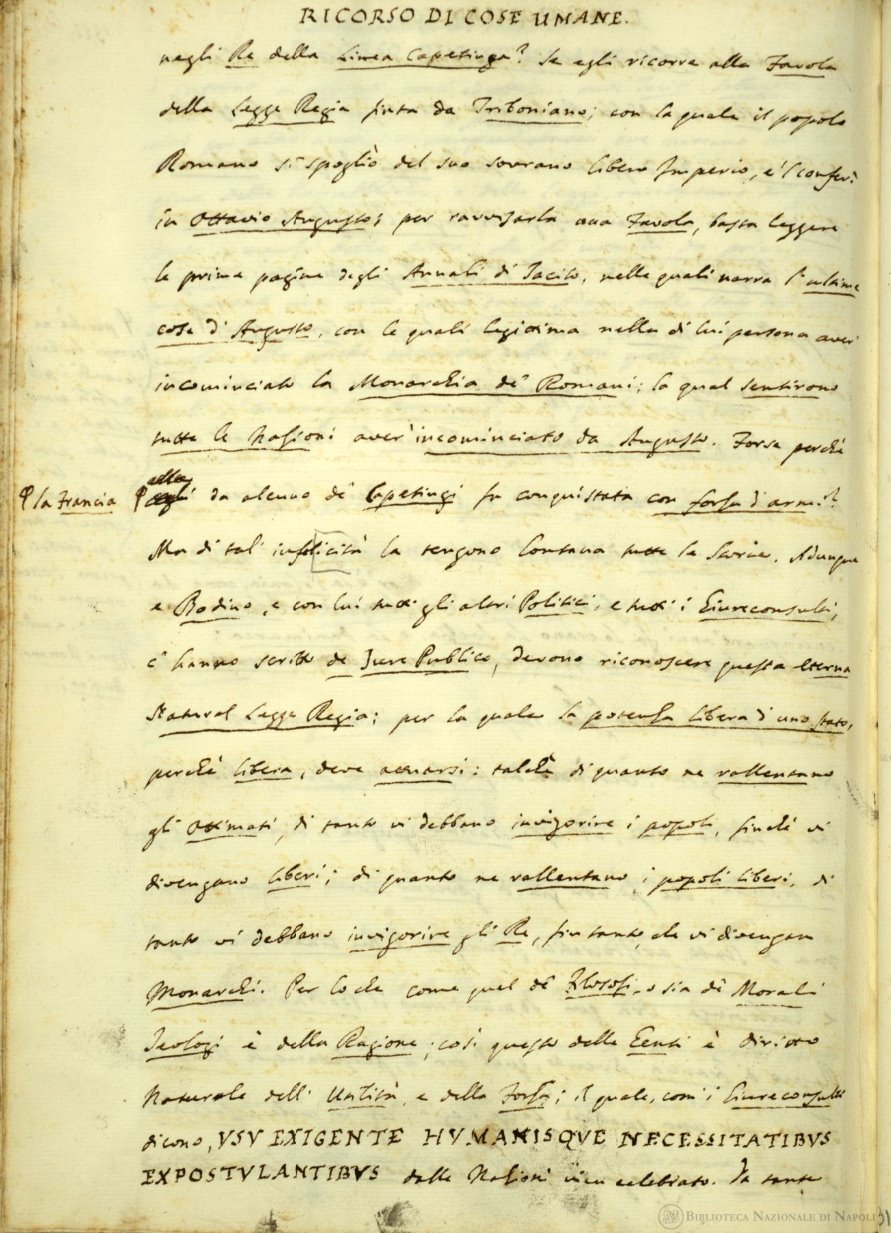 RICORSO DI COSE UMANE.
negli Re della Linea Capetinga? Se egli ricorre alla Favola
della Legge Regia finta da Triboniano; con la quale il popolo
Romano si spogliò del suo sovrano libero Imperio, e 'l conferì
in Ottavio Augusto; per ravvisarla una Favola, basta leggere
le prime pagine degli Annali di Tacito, nelle quali narra l'ultime
cose d'Augusto, con le quali legittima nella di lui persona aver'
incominciato la Monarchia de' Romani; la qual sentirono
tutte le Nazioni aver' incominciato da Augusto. Forse perchè
la Francia
da alcuno de' Capetingi fu conquistata con forza d'armi?
Ma di tal' infelicità la tengono lontana tutte le Storie. Adunque
e Bodino, e con lui tutti gli altri Politici, e tutti i Giureconsulti,
c' hanno scritto de Jure Publico, devono riconoscere questa eterna
Natural Legge Regia; per la quale la potenza libera d'uno stato,
perchè libera, deve attuarsi: talchè di quanto ne rallentano
gli Ottimati, di tanto vi debbano invigorire i popoli, finchè vi
divengano liberi; di quanto ne rallentano i popoli liberi, di
tanto vi debbano invigorire gli Re, fintanto, che vi divengan
Monarchi. Per lo che come quel de' Filosofi, o sia de' Morali
Teologi è della Ragione; così questo delle Genti è diritto
Naturale dell' Utilità, e della Forza; il quale, com' i Giureconsulti
dicono, VSV EXIGENTE HVMANISQVE NECESSITATIBVS
EXPOSTVLANTIBVS dalle Nazioni vien celebrato. Da tante
BIBLIOTECA NAZIONALE DI NAPOLI